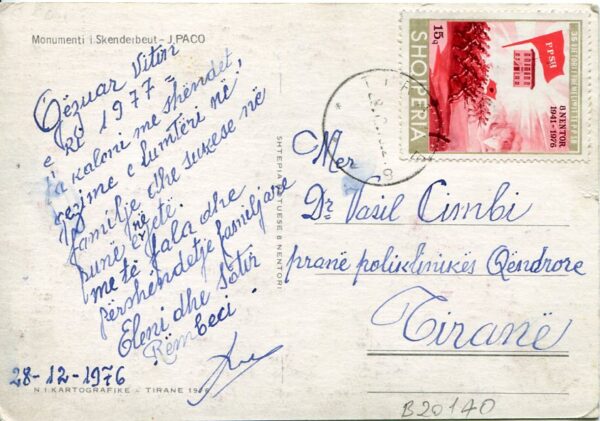 Monumenti i Skenderbeut - J. PACO
Gëzuar Vitin
e ri 1977 =
ja kaloni me shëndet,
gëzime e lumtëri në
familje dhe suksese në
punë në jetë.
me të fala dhe
përshëndetje familjare
Eleni dhe Sotir
Rëmbeci
28-12-1976
N I KARTOGRAFIKE - TIRANE 1976
SHTEPIA BOTUESE 8 NENTORI
Mer
Dr Vasil Cimbi
pranë poliklinikës Qëndrore
Tiranë
15q
SHQIPERIA
PPSH
8 NENTOR
1941-1976
B20140